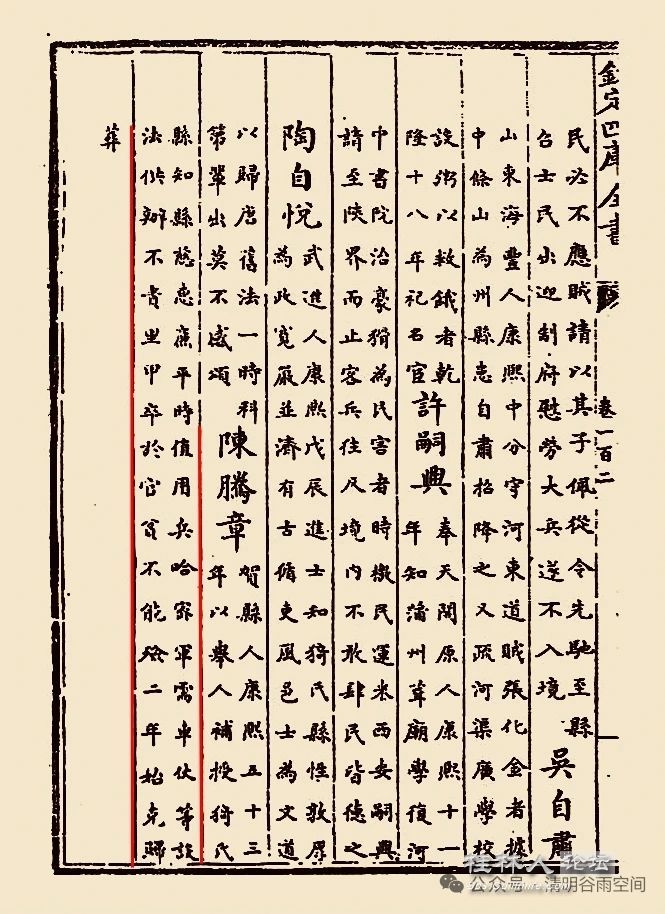 欽定四庫全書
卷一百二
民必不應賊請以其子佩從令先馳至縣
召士民出迎刮府慰勞大兵遂不入境
吳自肅
山東海豐人康熙中分守河東道賊張化金者據
中條山為州縣患自肅招降之又疏河渠廣學校
設粥以救餓者乾
隆十八年祀名宦
許嗣興
奉天開原人康熙十一
年知蒲州葺廟學復河
中書院治豪猾為民害者時檄民運米西安嗣興
請至陝界而止客兵住凡境內不敢肆民皆德之
陶自悅
武進人康熙戊辰進士知猗氏縣性敦厚
為政寬嚴並濟有古循吏風邑士為文道
以歸唐舊法一時科
第輩出莫不感頌
陳騰章
賀縣人康熙五十三
年以舉人補授猗氏
縣知縣慈惠廉平時值用兵哈密軍需車仗等設
法供辦不責里甲卒於官貧不能殮二年始克歸
葬
桂林人论坛
公众号 · 清明谷雨空间